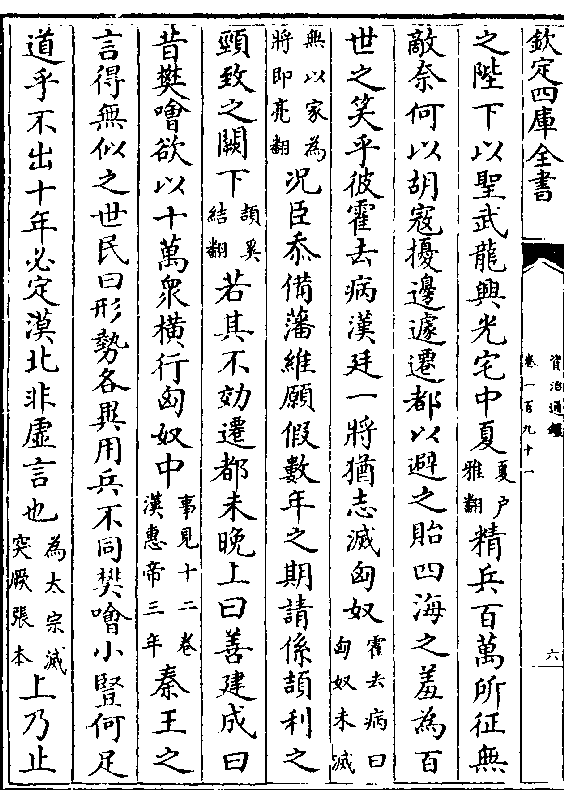 欽定四庫全書
資治通鑑
卷一百九十一
六
之陛下以聖武龍興光宅中夏夏户雅翻精兵百萬所征無
敵奈何以胡寇擾邊遽遷都以避之貽四海之羞為百
世之笑乎彼霍去病漢廷一將猶志滅匈奴霍去病曰匈奴未滅
無以家為將即亮翻况臣忝備藩維願假數年之期請係頡利之
頸致之闕下頡奚結翻若其不効遷都未晚上曰善建成曰
昔樊噲欲以十萬衆横行匈奴中事見十二卷漢惠帝三年秦王之
言得無似之世民曰形勢各異用兵不同樊噲小豎何足
道乎不出十年必定漠北非虚言也為太宗滅突厥張本上乃止